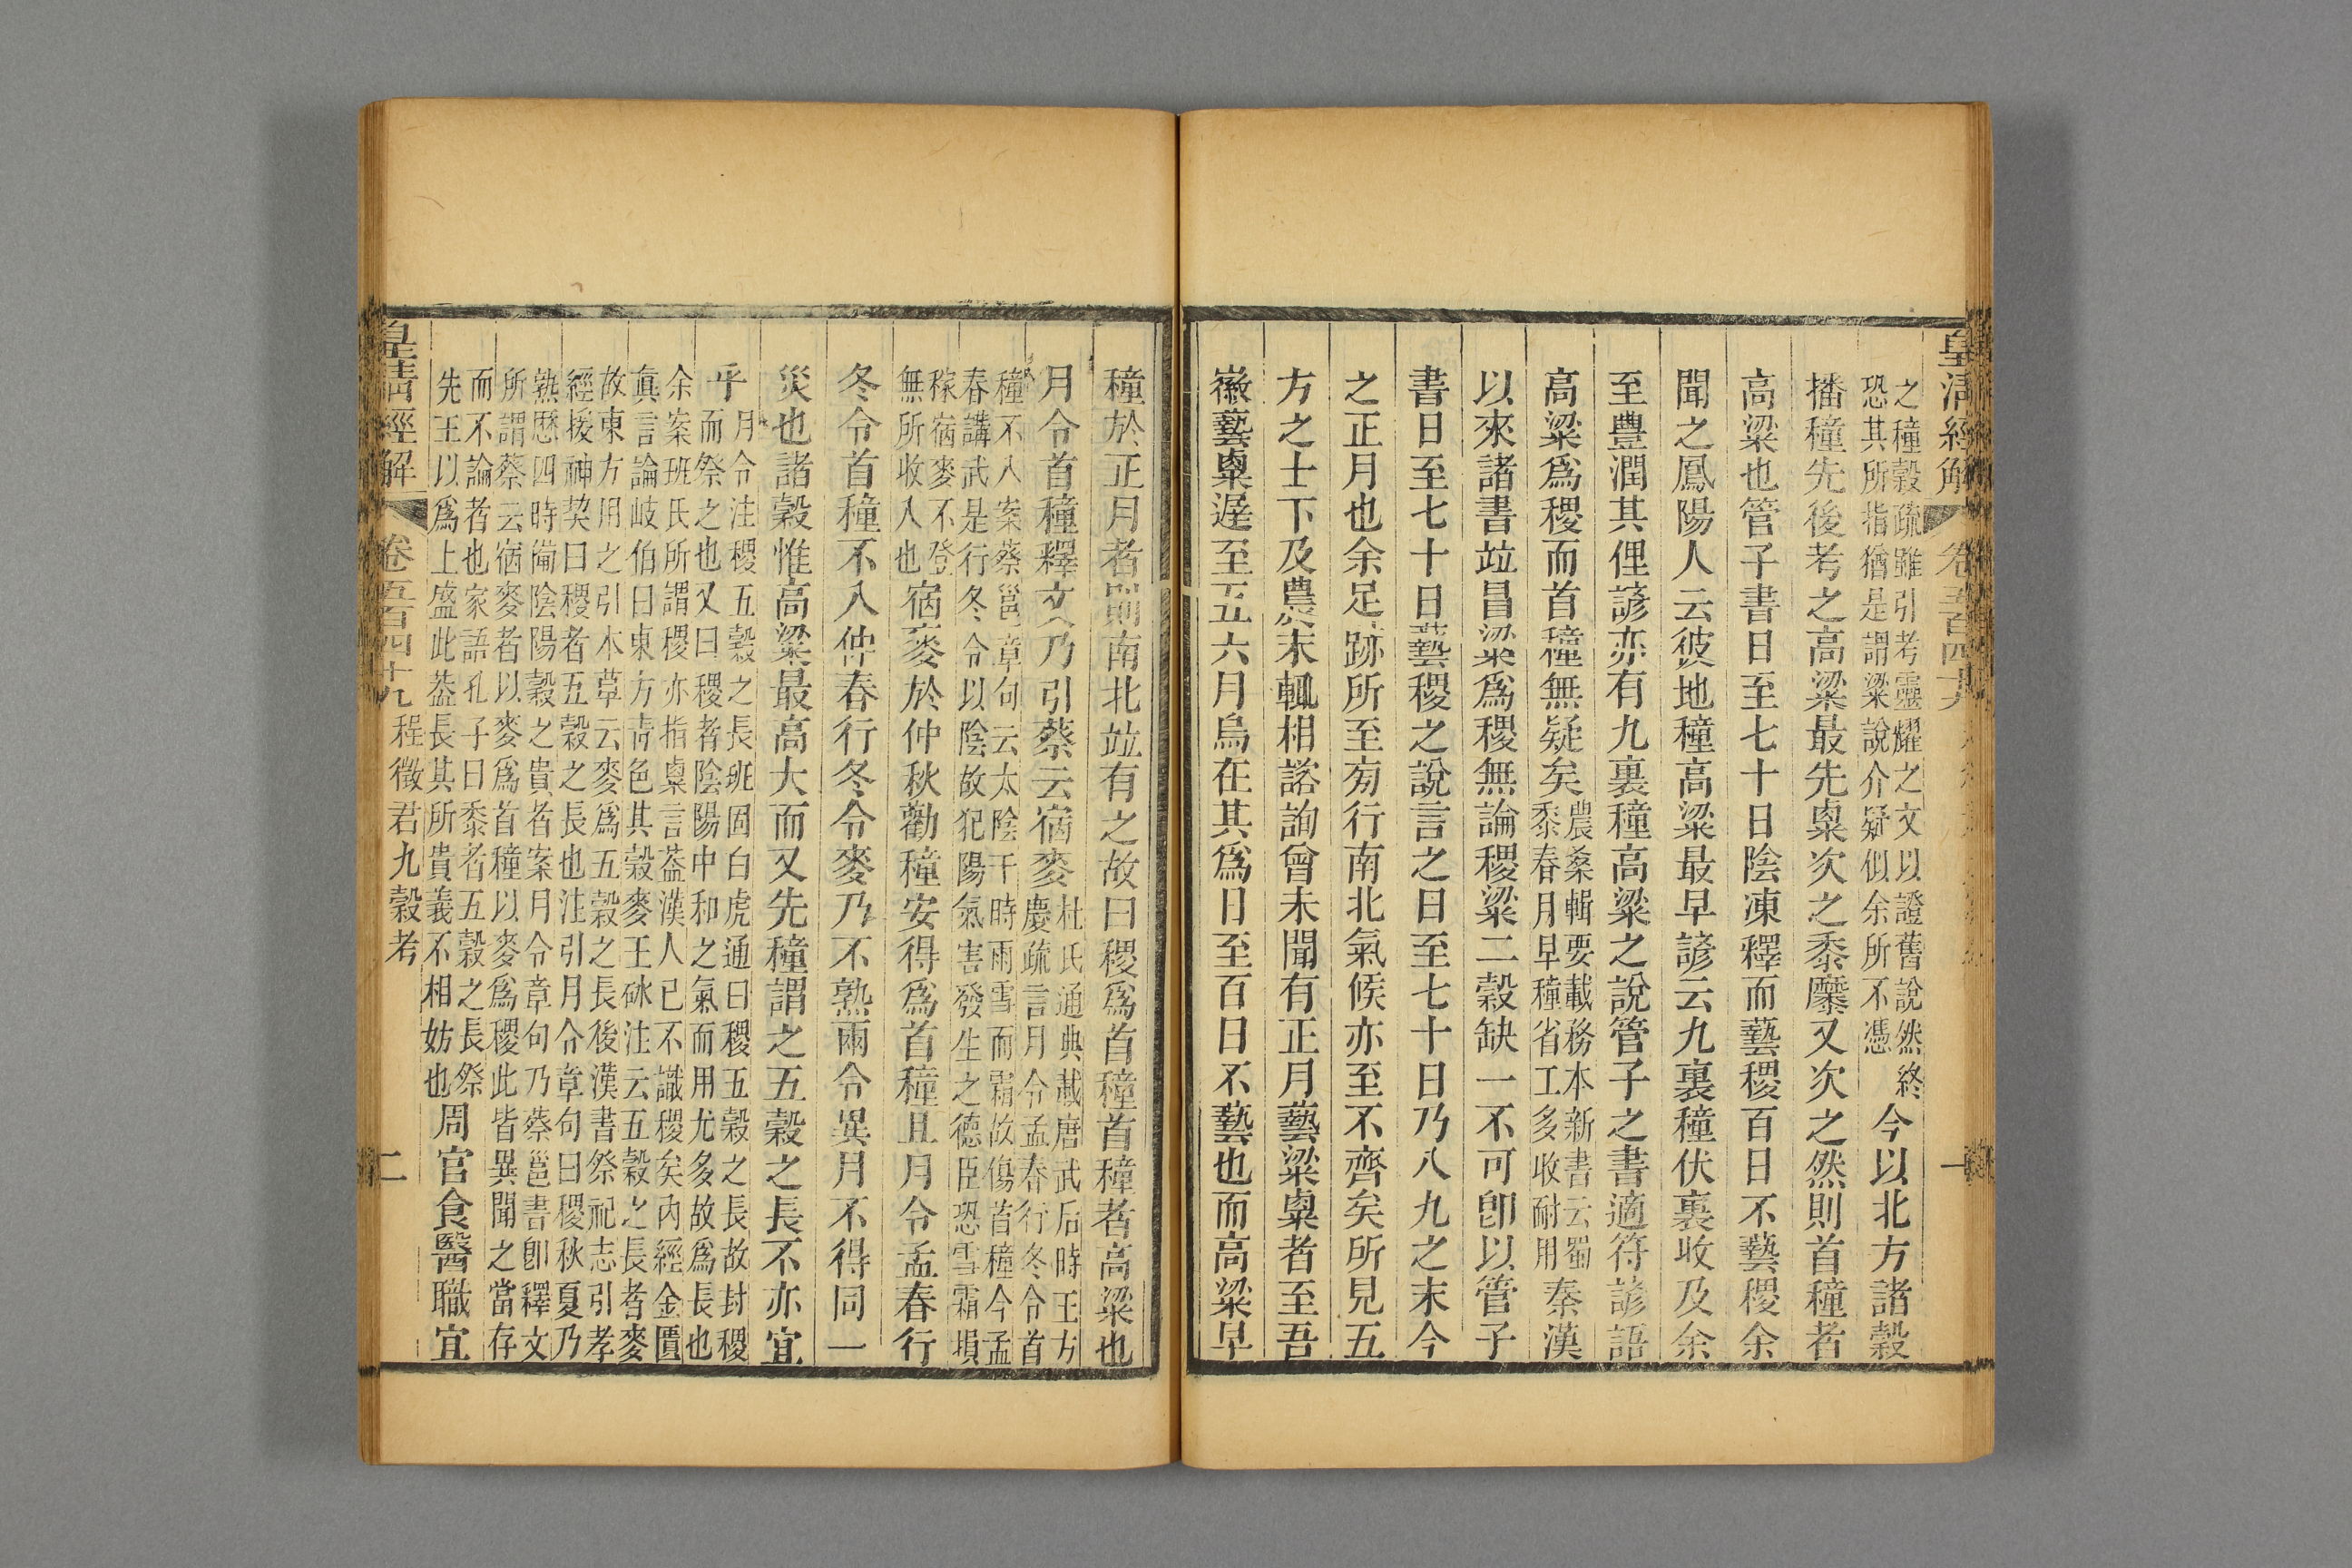 皇清經解 卷五百四十九
之種穀疏雖引考靈耀之文以證舊說然終
恐其所指猶是謂粱說介疑似余所不憑
今以北方諸穀
播種先後考之高粱最先粟次之黍穈又次之然則首種者
高粱也管子書日至七十日陰凍釋而藝稷百日不藝稷余
聞之鳳陽人云彼地種高粱最早諺云九裏種伏裏收及余
至豐潤其俚諺亦有九裏種高粱之說管子之書適符諺語
高粱爲稷而首種無疑矣
農桑輯要載務本新書云蜀
黍春月早種省工多收耐用
秦漢
以來諸書竝昌粱爲稷無論稷粱二穀缺一不可卽以管子
書日至七十日藝稷之說言之日至七十日乃八九之末今
之正月也余足跡所至旁行南北氣候亦至不齊矣所見五
方之士下及農末輒相諮詢曾未聞有正月藝粱粟者至吾
徽藝粟遲至五六月烏在其爲日至百日不藝也而高粱早
種於正月者則南北竝有之故曰稷爲首種首種者高粱也
月令首種釋文乃引蔡云宿麥
杜氏通典載唐武后時王方
慶疏言月令孟春行冬令首
種不入案蔡邕章句云太陰干時雨雪而霜故傷首種今孟
春講武是行冬令以陰故犯陽氣害發生之德臣恐雪霜損
稼宿麥不登
無所收入也
宿麥於仲秋勸種安得爲首種且月令孟春行
冬令首種不入仲春行冬令麥乃不熟兩令異月不得同一
災也諸穀惟高粱最高大而又先種謂之五穀之長不亦宜
乎
月令注稷五穀之長班固白虎通曰稷五穀之長故封稷
而祭之也又曰稷者陰陽中和之氣而用尤多故爲長也
余案班氏所謂稷亦指粟言葢漢人已不識稷矣內經金匱
眞言論岐伯曰東方靑色其穀麥王砅注云五穀之長者麥
故東方用之引本草云麥爲五穀之長後漢書祭祀志引孝
經援神契曰稷者五穀之長也注引月令章句曰稷秋夏乃
熟歷四時備陰陽穀之貴者案月令章句乃蔡邕書卽釋文
所謂蔡云宿麥者以麥爲首種以麥爲稷此皆異聞之當存
而不論者也家語孔子曰黍者五穀之長祭
先王以爲上盛此葢長其所貴義不相妨也
周官食醫職宜
皇清經解 卷五百四十九 程徵君九穀考 二